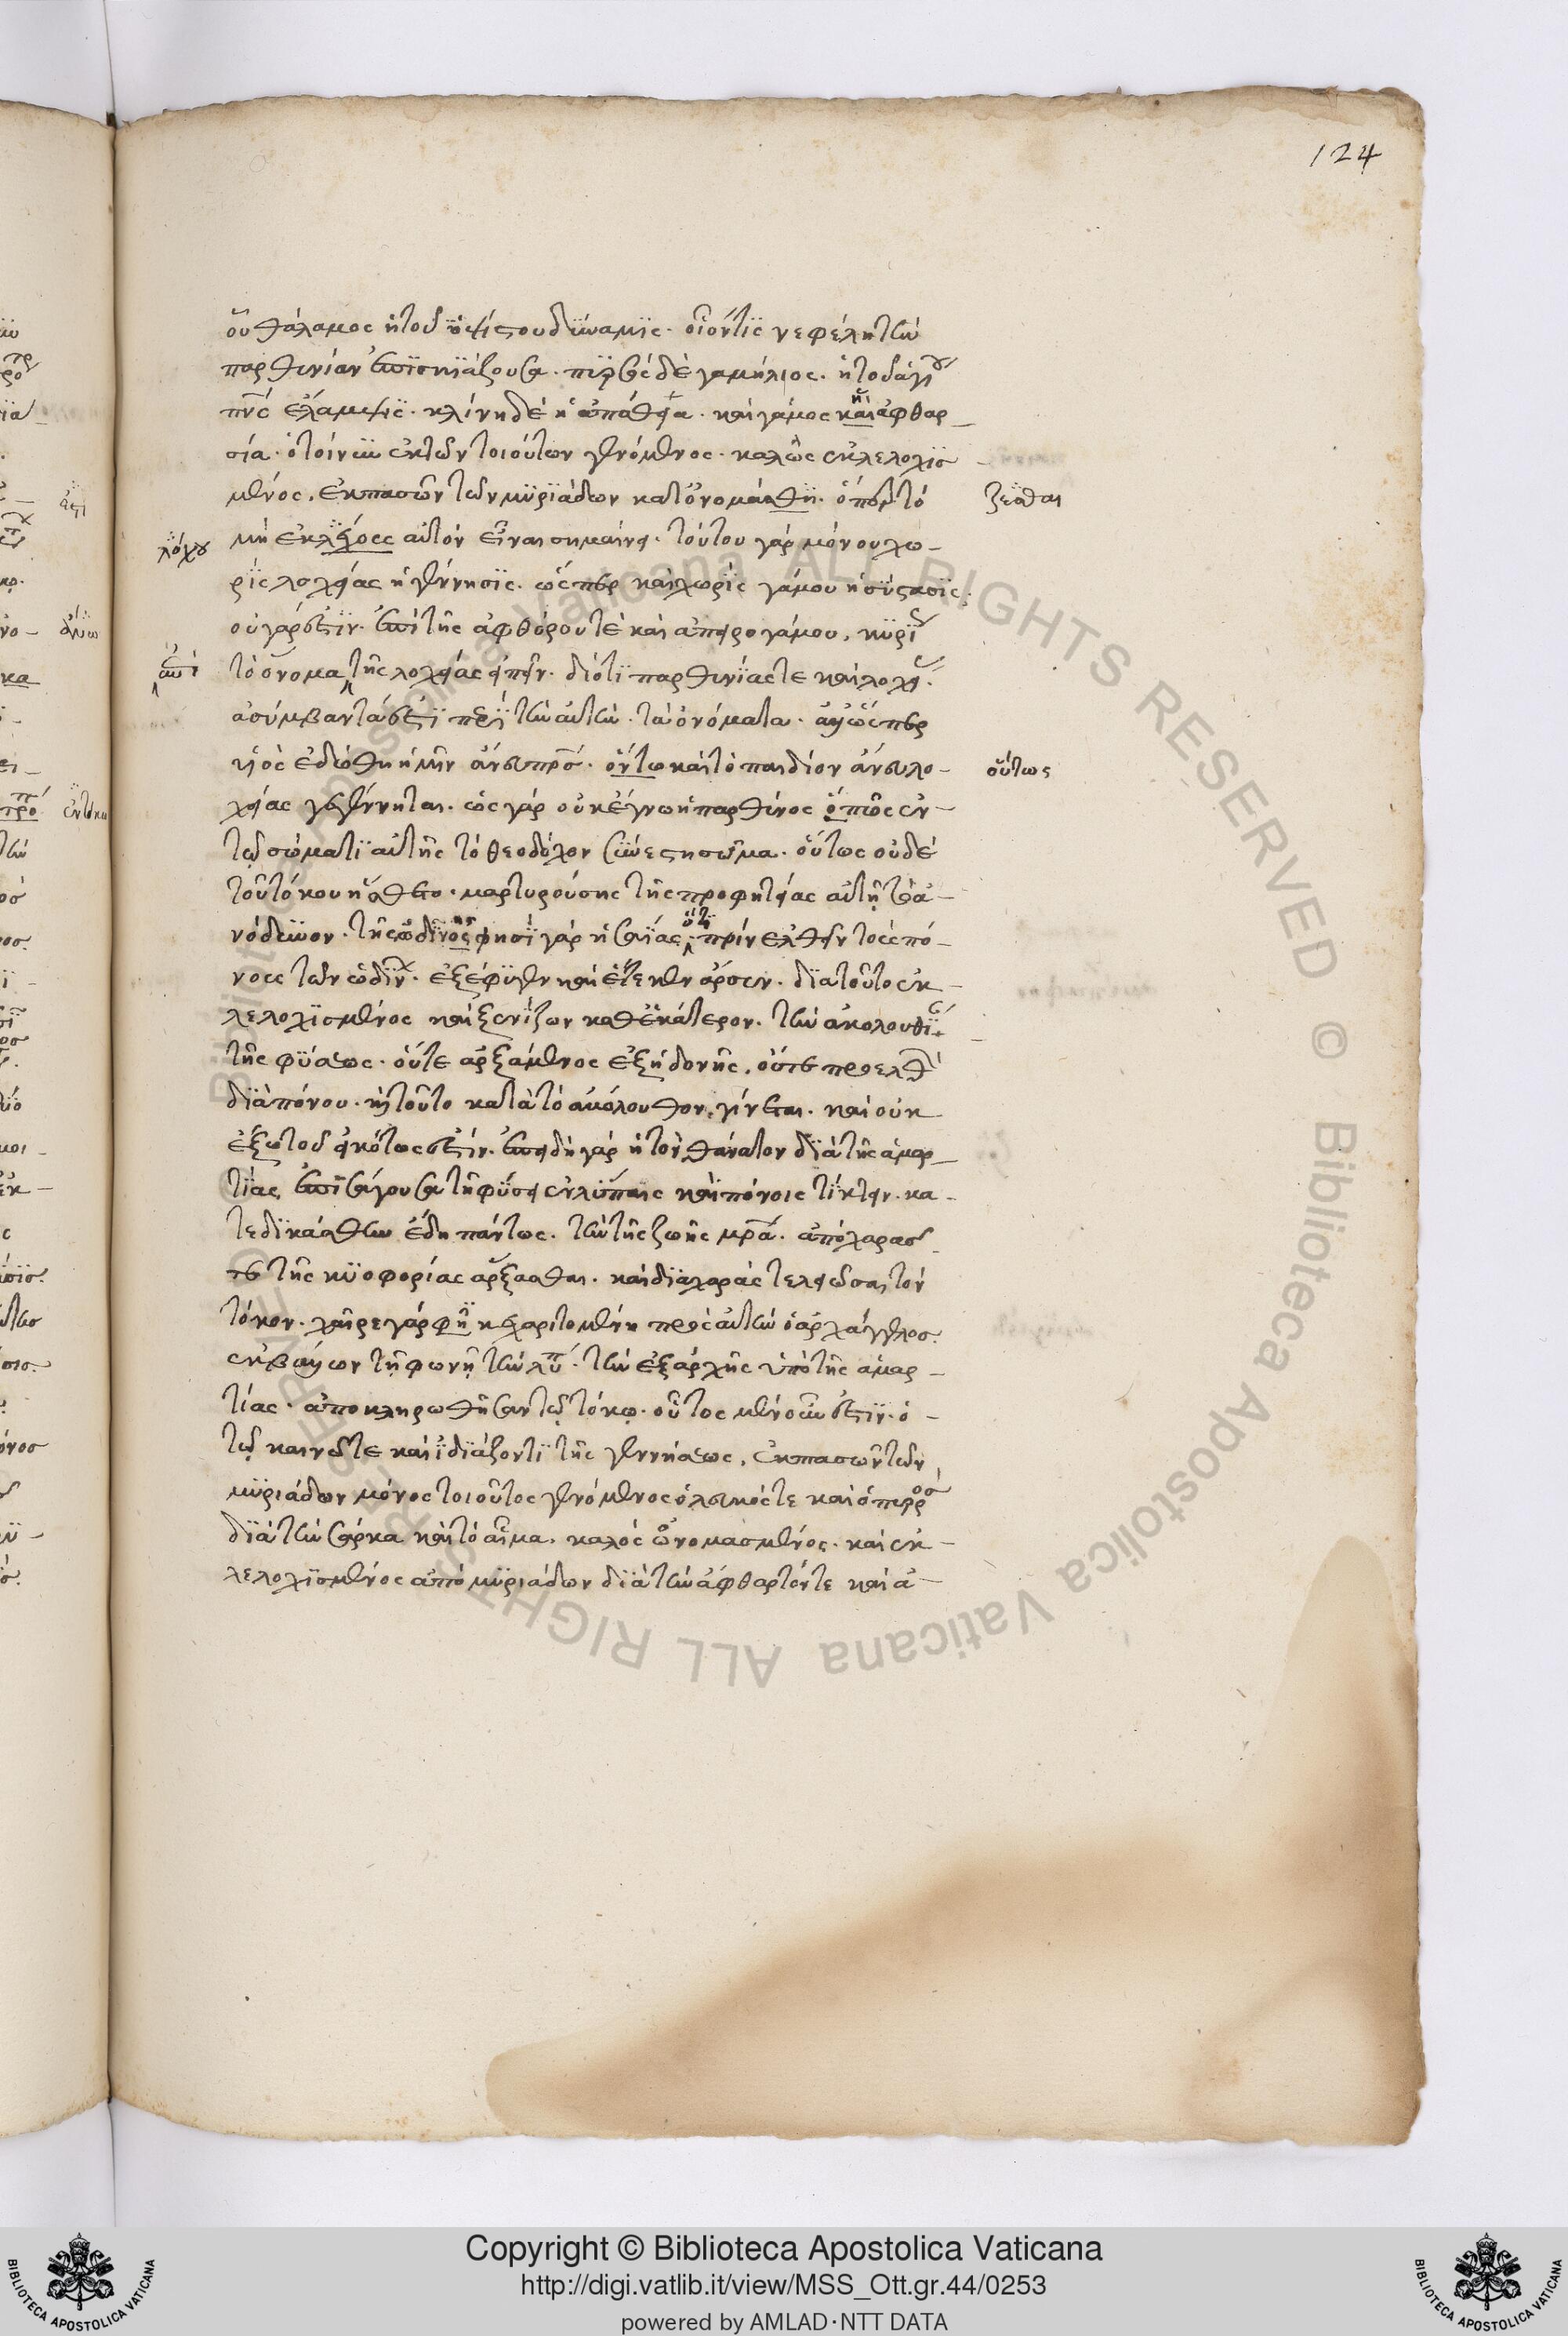 124
οὗ θάλαμος ἡ τοῦ ὑψίστου δύναμϊς· οἱονεί τϊς νεφέλη τὴν
παρθενίαν ἐπϊσκϊάζουσα· πϋρσὸς δὲ γαμήλιος· ἡ τοῦ ἁγίου
πνς ἔλαμψϊς· κλίνη δὲ ἡ ἀπάθεια· καὶ γάμος καὶ ἀφθαρ
σία· ὁ τοίνυν ἐκ τῶν τοιούτων γενόμενος· καλῶς ἐκλελοχϊσ
μένος, ἐκ πασῶν τῶν μϋρϊάδων κατονομάσθη· ὅπερ τό
ζεσθαι
λόχου
μὴ ἐκ λέχους αὐτὸν εἶναι σημαίνει· τούτου γὰρ μόνου χω
ρὶς λοχείας ἡ γέννησϊς· ὥσπερ καὶ χωρὶς γάμου ἡ σύστασϊς·
οὐ γάρ ἐστϊν· ἐπὶ τῆς ἀφθόρου τὲ καὶ ἀπειρογάμου, κϋρϊ
ἀντὶ
τὸ ὄνομα τῆς λοχείας εἰπεῖν· διότϊ παρθενίας τε καὶ λοχεί
ἀσύμβαντά ἐστϊ περὶ τὴν αὐτὴν· τὰ ὀνόματα· ἀλλ' ὥσπερ
υἱὸς ἐδόθη ἡμῖν ἄνευ πρς· οὕτω καὶ τὸ παιδίον ἄνευ λο
οὕτως
χείας γεγέννηται· ὡς γὰρ οὐκ ἔγνω ἡ παρθένος ὅπως ἐν
τῷ σώματϊ αὐτῆς τὸ θεοδόχον συνέστη σῶμα· οὕτως οὐδὲ
τοῦ τόκου ἤσθετο· μαρτυρούσης τῆς προφητείας αὐτῇ τὸ ἀ
νόδυνον· τῆς ὠδῖνος φησὶ γὰρ ἡσαϊας· πρὶν ἐλθεῖν τοὺς πό
νους τῶν ὠδίν· ἐξέφϋγεν καὶ ἔτεκεν ἄρσεν· διὰ τοῦτο ἐκ
λελοχϊσμένος καὶ ξενίζων καθ' ἑκάτερον· τὴν ἀκολουθί
τῆς φϋσεως· οὔτε ἀρξάμενος ἐξ ἡδονῆς, οὔτε προελθ
διὰ πόνου· καὶ τοῦτο κατὰ τὸ ἀκόλουθον, γίνεται· καὶ οὐκ
ἔξω τοῦ εἰκότος ἐστίν· ἐπειδὴ γὰρ ἡ τὸν θάνατον διὰ τῆς ἁμαρ
τίας ἐπεισάγουσα τῇ φύσει ἐν λύπαις καὶ πόνοις τίκτειν· κα
τεδϊκάσθην ἔδη πάντως· τὴν τῆς ζωῆς μρα· ἀπὸ χαρᾶς
τε τῆς κϋοφορίας ἄρξασθαι· καὶ διὰ χαρᾶς τελειῶσαι τὸν
τόκον· χαῖρε γὰρ φη κεχαριτομένη πρὸς αὐτὴν ὁ ἀρχάγγελος·
ἐκβαλὼν τῇ φωνῇ τὴν λύπ· τὴν ἐξ ἀρχῆς ὑπὸ τῆς ἁμαρ
τίας· ἀποκληρωθεῖσαν τῷ τόκῳ· οὗτος μὲν οὖν ἐστϊν· ὁ
τῷ καινῷ τε καὶ ϊδϊάζοντϊ τῆς γεννήσεως, ἐκ πασῶν τῶν
μϋριάδων μόνος τοιοῦτος γενόμενος ὁ λευκός τε καὶ ὁ πυρρὸς
διὰ τὴν σάρκα καὶ τὸ αἷμα· καλὸς ὠνομασμένος· καὶ ἐκ
λελοχϊσμένος ἀπὸ μϋριάδων διὰ τὴν ἄφθαρτόν τε καὶ ἀ
Copyright © Biblioteca Apostolica Vaticana
http://digi.vatlib.it/view/MSS_Ott.gr.44/0253
powered by AMLAD·NTT DATA